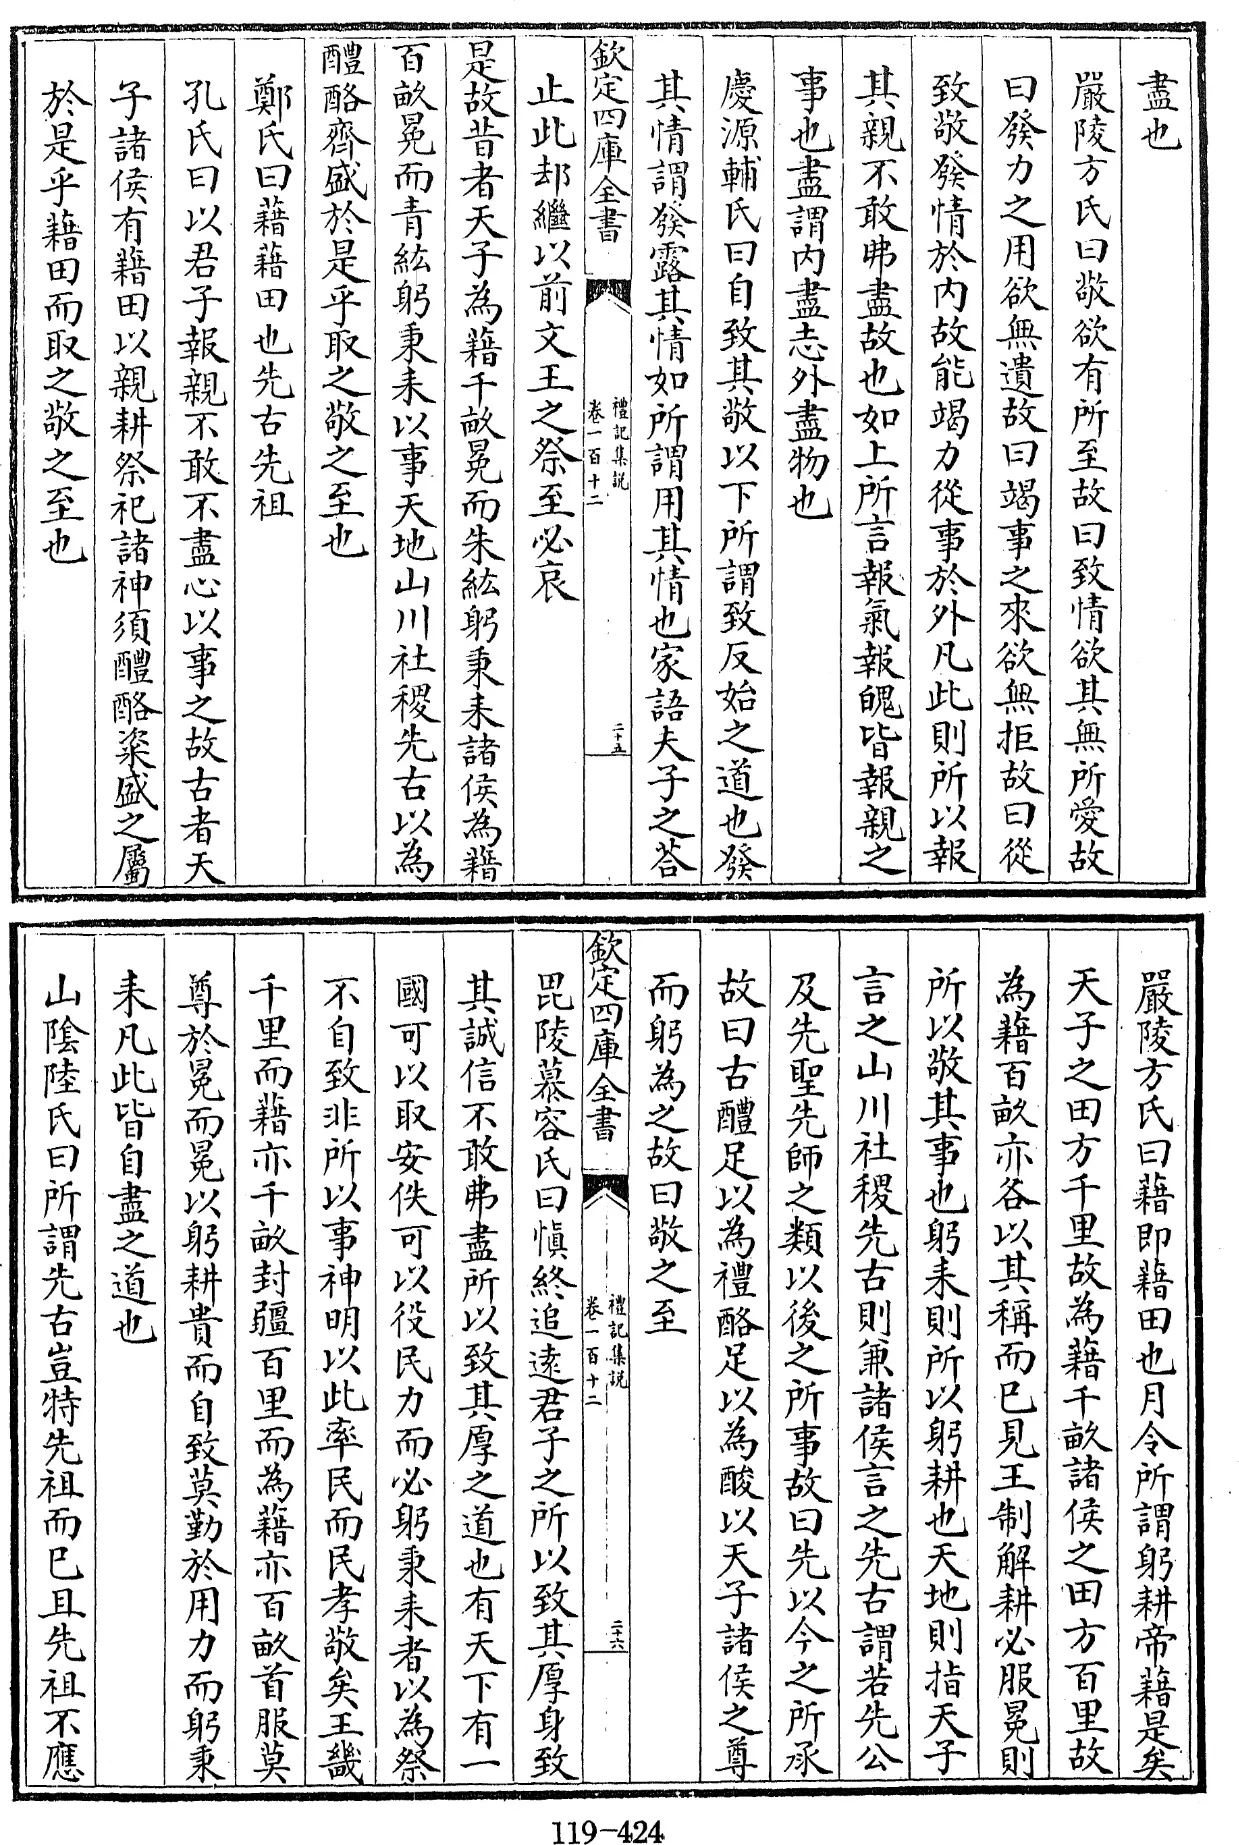 盡也
嚴陵方氏曰敬欲有所至故曰致情欲其無所愛故
曰發力之用欲無遺故曰竭事之來欲無拒故曰從
致敬發情於內故能竭力從事於外凡此則所以報
其親不敢弗盡故也如上所言報氣報魄皆報親之
事也盡謂内盡志外盡物也
慶源輔氏曰自致其敬以下所謂致反始之道也發
其情謂發露其情如所謂用其情也家語夫子之荅
欽定四庫全書
禮記集說
卷一百十二
二十五
止此却繼以前文王之祭至必哀
是故昔者天子為藉千畝冕而朱紘躬秉耒諸侯為藉
百畝冕而青紘躬秉耒以事天地山川社稷先古以為
醴酪齊盛於是乎取之敬之至也
鄭氏曰藉藉田也先古先祖
孔氏曰以君子報親不敢不盡心以事之故古者天
子諸侯有藉田以親耕祭祀諸神須醴酪粢盛之屬
於是乎藉田而取之敬之至也
嚴陵方氏曰藉即藉田也月令所謂躬耕帝藉是矣
天子之田方千里故為藉千畝諸侯之田方百里故
為藉百畝亦各以其稱而已見王制解耕必服冕則
所以敬其事也躬耒則所以躬耕也天地則指天子
言之山川社稷先古則兼諸侯言之先古謂若先公
及先聖先師之類以後之所事故曰先以今之所承
故曰古醴足以為禮酪足以為酸以天子諸侯之尊
而躬為之故曰敬之至
欽定四庫全書
禮記集說
卷一百十二
二十六
毘陵慕容氏曰慎終追遠君子之所以致其厚身致
其誠信不敢弗盡所以致其厚之道也有天下有一
國可以取安佚可以役民力而必躬秉耒者以為祭
不自致非所以事神明以此率民而民孝敬矣王畿
千里而藉亦千畝封疆百里而為藉亦百畝首服莫
尊於冕而冕以躬耕貴而自致莫勤於用力而躬秉
耒凡此皆自盡之道也
山陰陸氏曰所謂先古豈特先祖而已且先祖不應
119-424